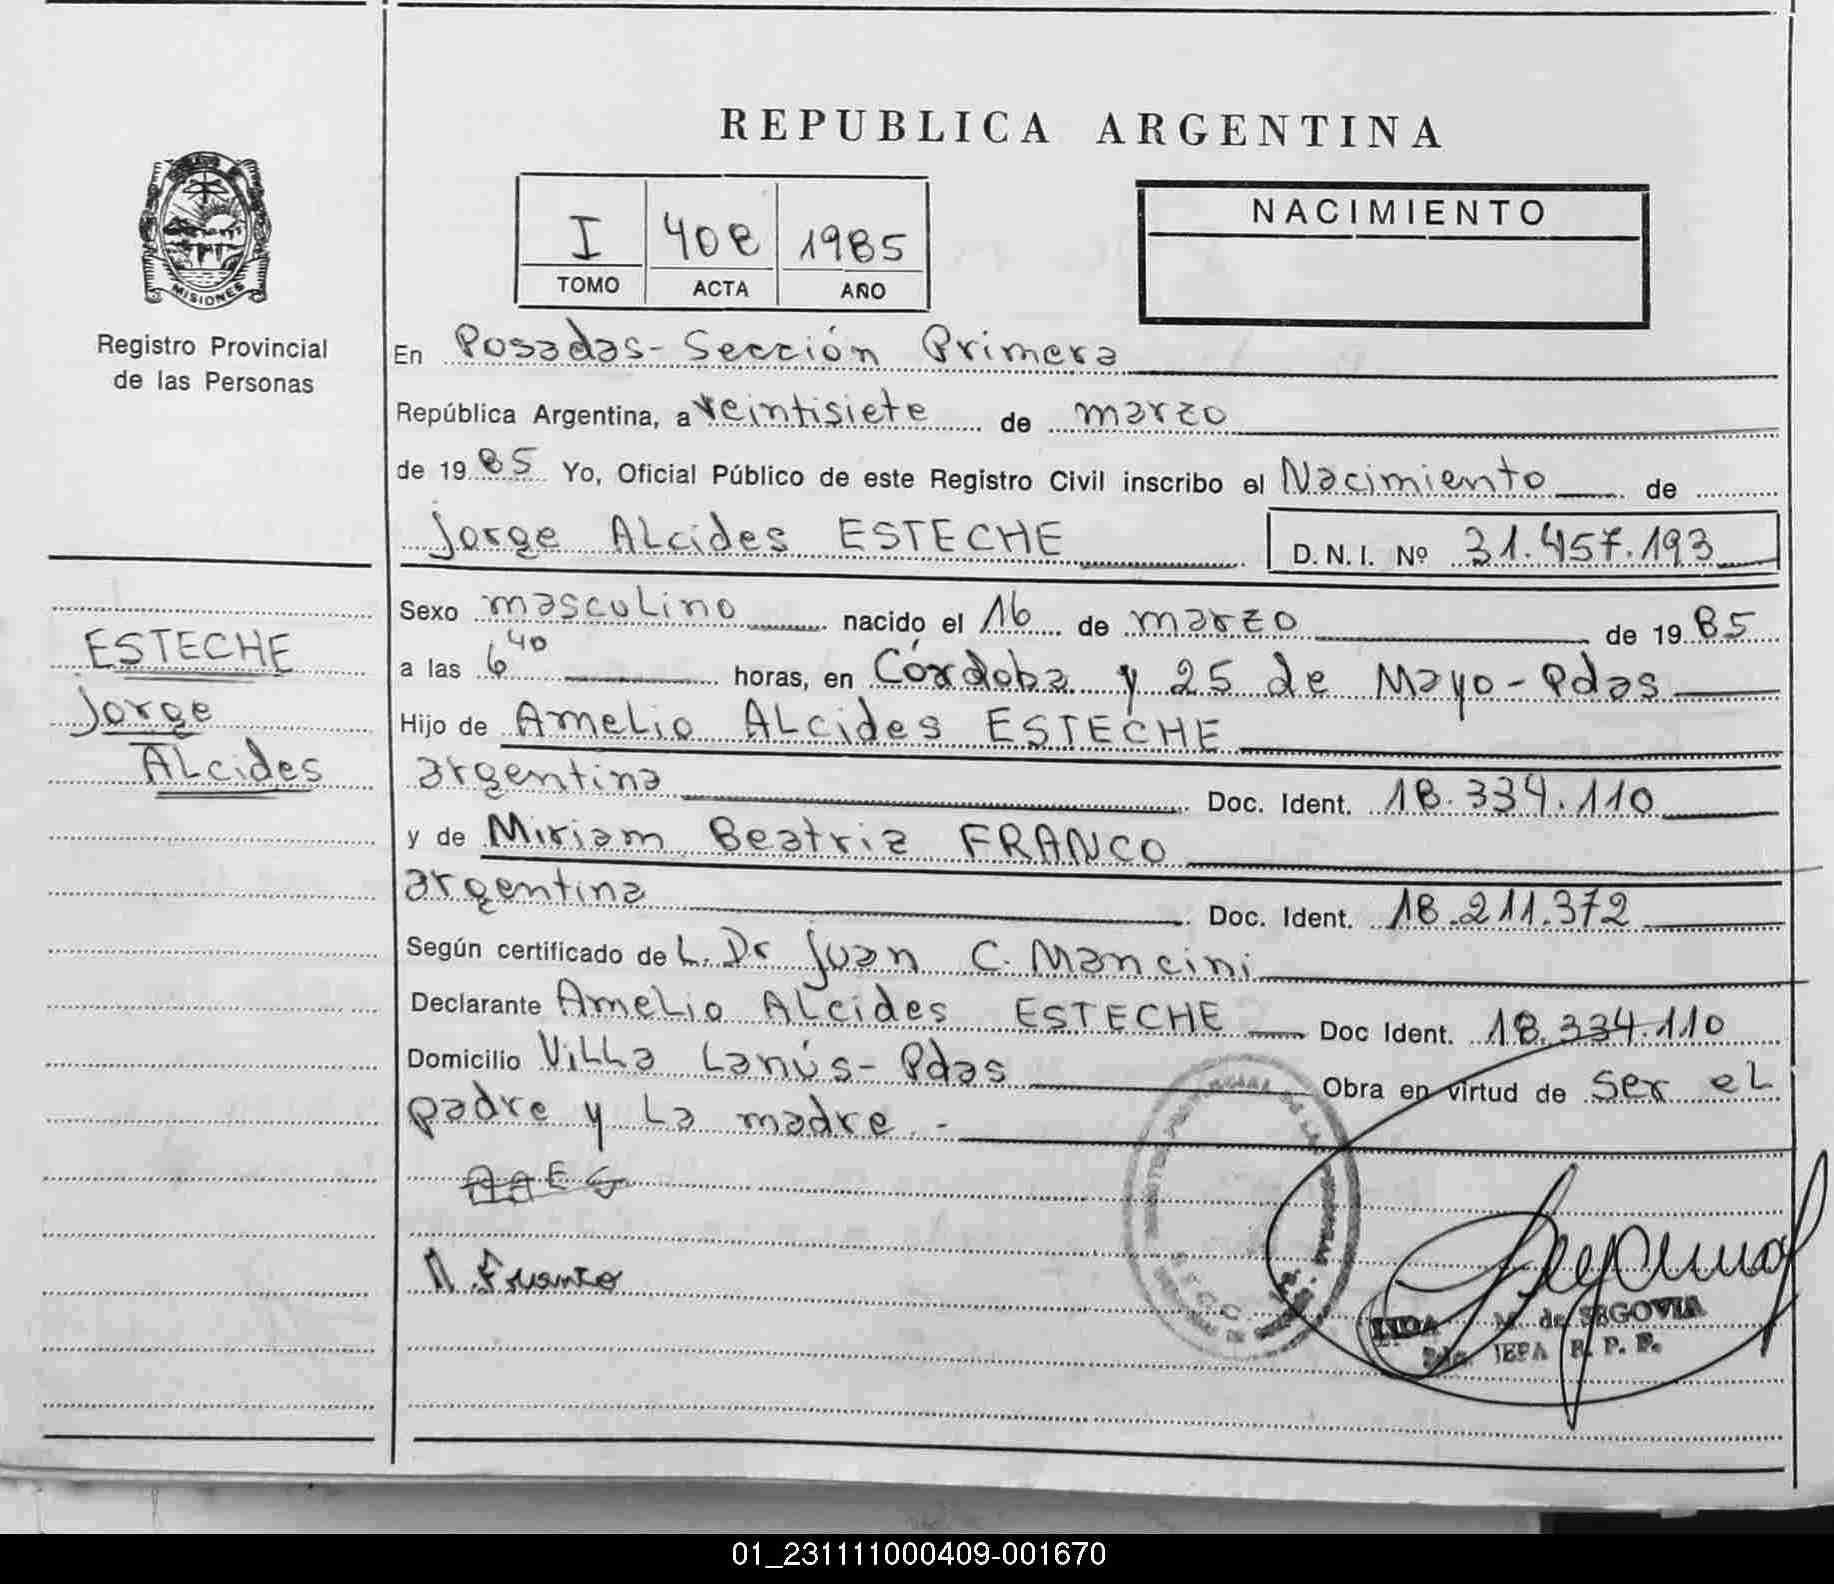 REPUBLICA ARGENTINA
MISIONES
Registro Provincial
de las Personas
I 408 1985
TOMO ACTA AÑO
NACIMIENTO
En Posadas-Sección Primera
República Argentina, a veintisiete de marzo
de 1985 Yo, Oficial Público de este Registro Civil inscribo el Nacimiento de
Jorge Alcides ESTECHE D.N.I. Nº 31.457.193
Sexo masculino nacido el 16 de marzo de 1985
a las 6 40 horas, en Córdoba y 25 de Mayo-Pdas
Hijo de Amelio Alcides ESTECHE
argentina Doc. Ident. 18.334.110
y de Miriam Beatriz FRANCO
argentina Doc. Ident. 18.211.372
Según certificado de L. Dr Juan C. Mancini
Declarante Amelio Alcides ESTECHE Doc Ident. 18.334.110
Domicilio Villa Lanús-Pdas Obra en virtud de ser el
padre y la madre.-
ESTECHE
Jorge
Alcides
A A E G
M. Franco
M. de SEGOVIA
JEFA R. P. P.
01_231111000409-001670